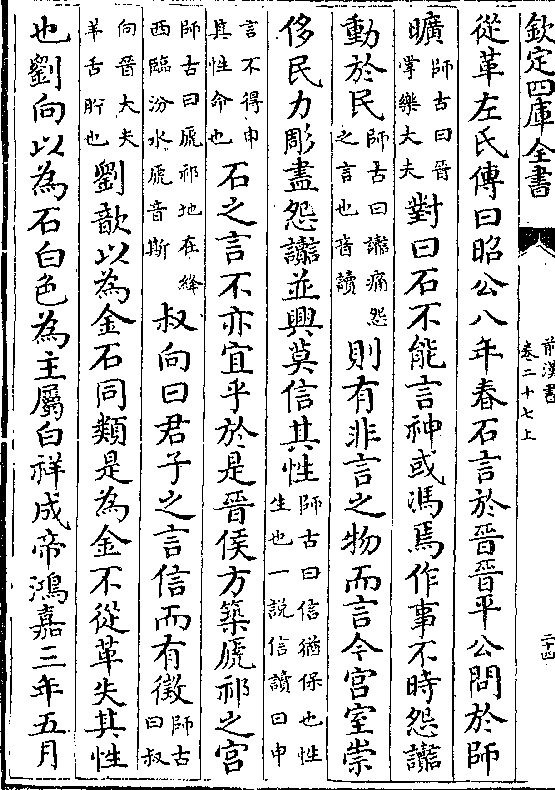 欽定四庫全書
前漢書
卷二十七上
二十四
從革左氏傳曰昭公八年春石言於晉晉平公問於師
曠師古曰晉掌樂大夫對曰石不能言神或馮焉作事不時怨讟
動於民師古曰讟痛怨之言也音讀則有非言之物而言今宮室崇
侈民力彫盡怨讟並興莫信其性師古曰信猶保也性生也一說信讀曰申
言不得申其性命也石之言不亦宜乎於是晉侯方築虒祁之宮
師古曰虒祁地在絳西臨汾水虒音斯叔向曰君子之言信而有徵師古曰叔
向晉大夫羊舌肸也劉歆以為金石同類是為金不從革失其性
也劉向以為石白色為主屬白祥成帝鴻嘉三年五月